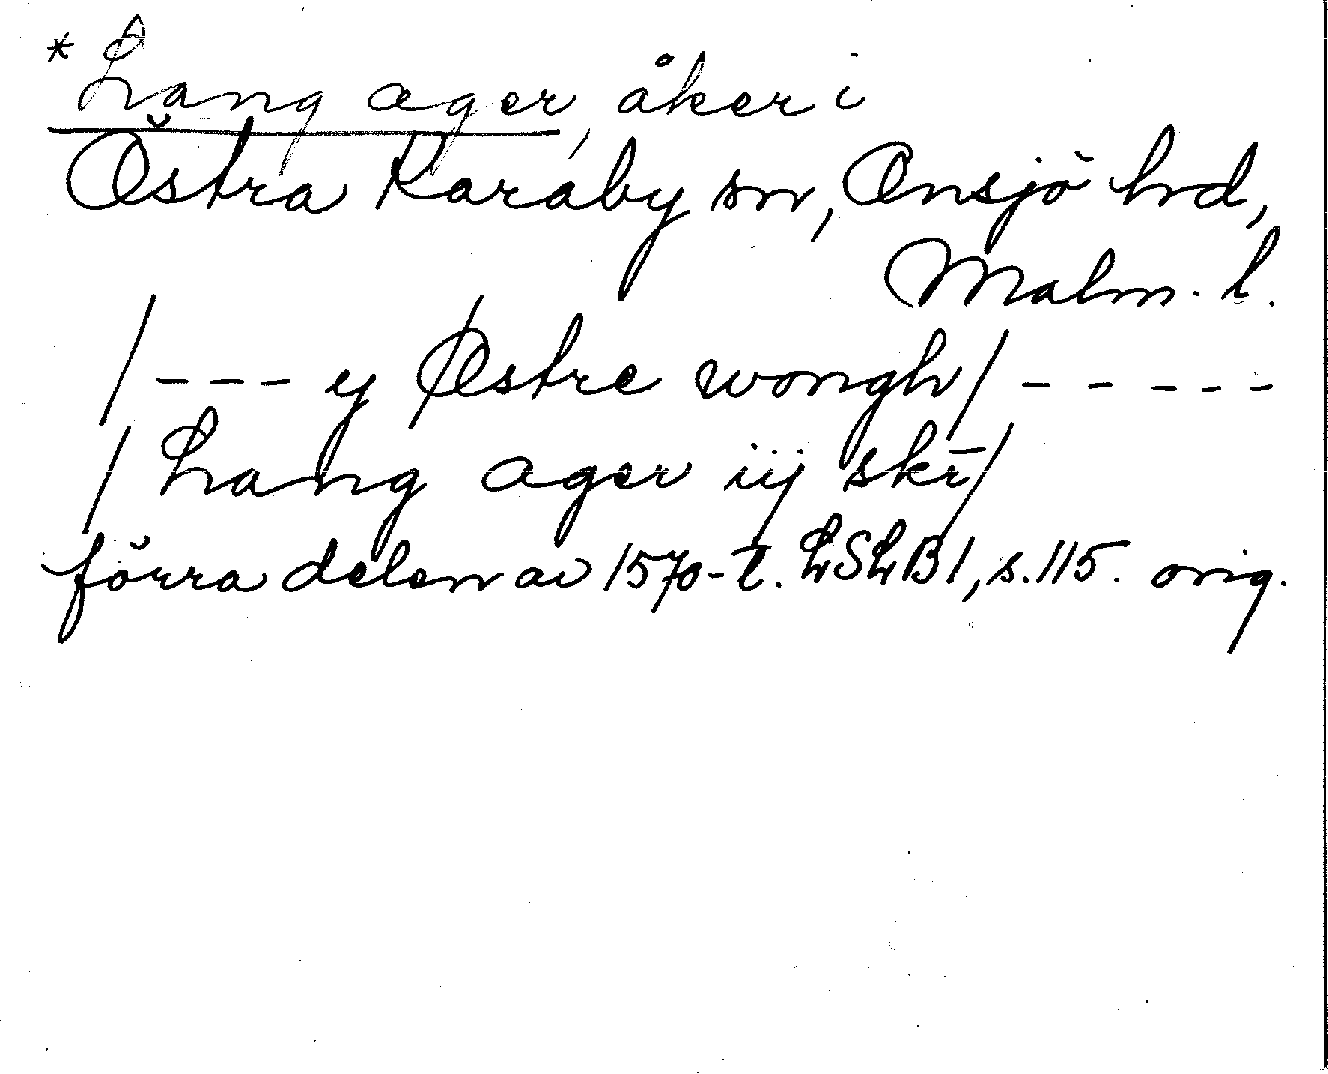 *Lang ager, åker i
Östra Karaby sn, Onsjö hd,
Malm. l.
/--- y Østre wongh/ -----
/ Lang ager iij skr̄/
förra delen av 1570-t. LSLB1, s.115. orig.